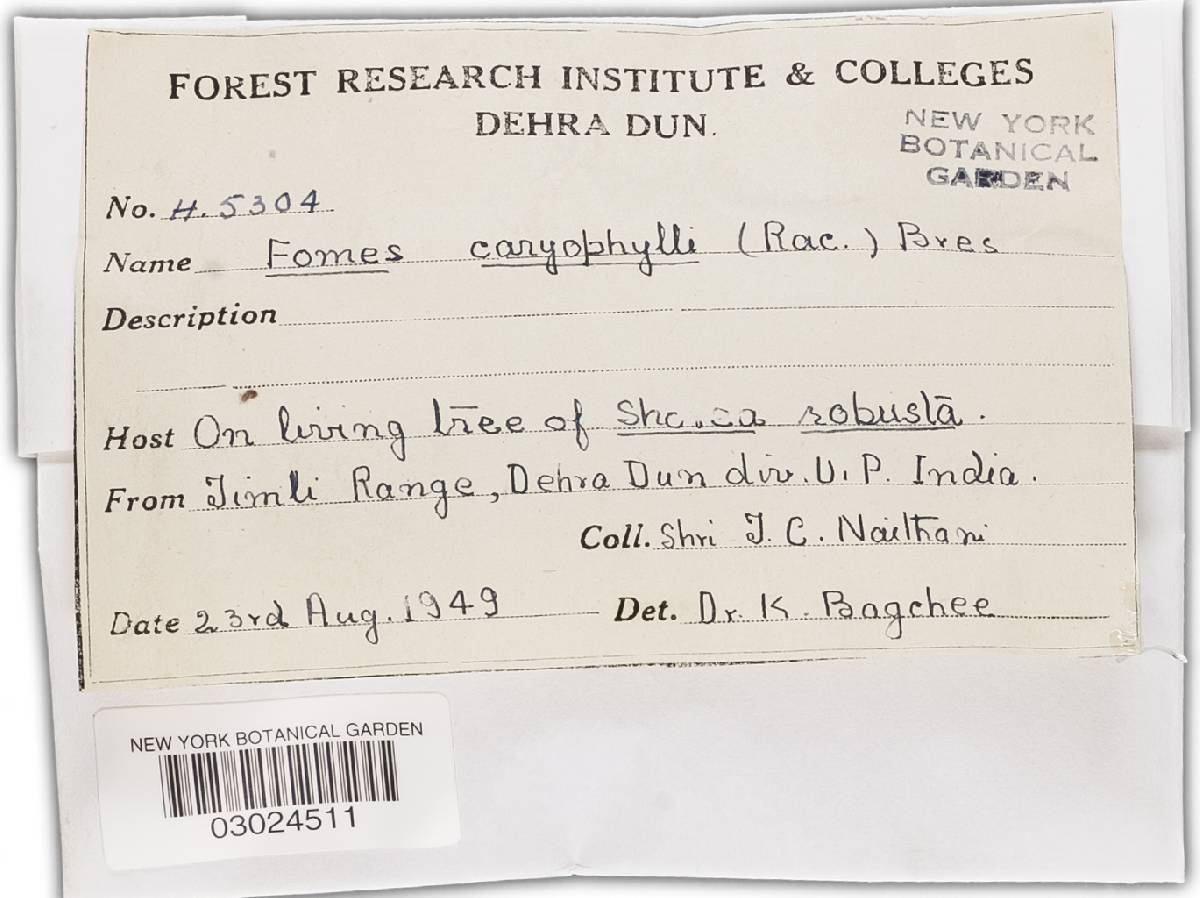 FOREST RESEARCH INSTITUTE & COLLEGES
DEHRA DUN.
NEW YORK
BOTANICAL
GARDEN
No. H. 5304
Name Fomes caryophylli (Rac.) Bres
Description
Host On living tree of robusta.
From Timli Range, Dehra Dun div. U. P. India.
Coll. Shri J. C. Naithani
Date 23rd Aug. 1949 Det. Dr. K. Bagchee
NEW YORK BOTANICAL GARDEN
03024511